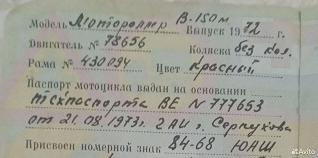 Модель Мотороллер В-150м Выпуск 1972 г.
Двигатель № 78656 Коляска без кол.
Рама № 430094 Цвет Красный
Паспорт мотоцикла выдан на основании
техпаспорта ВЕ N 777653
от 21.08.1973г. ГАИ г. Серпухова
Присвоен номерной знак 84-68 ЮАШ
Avito